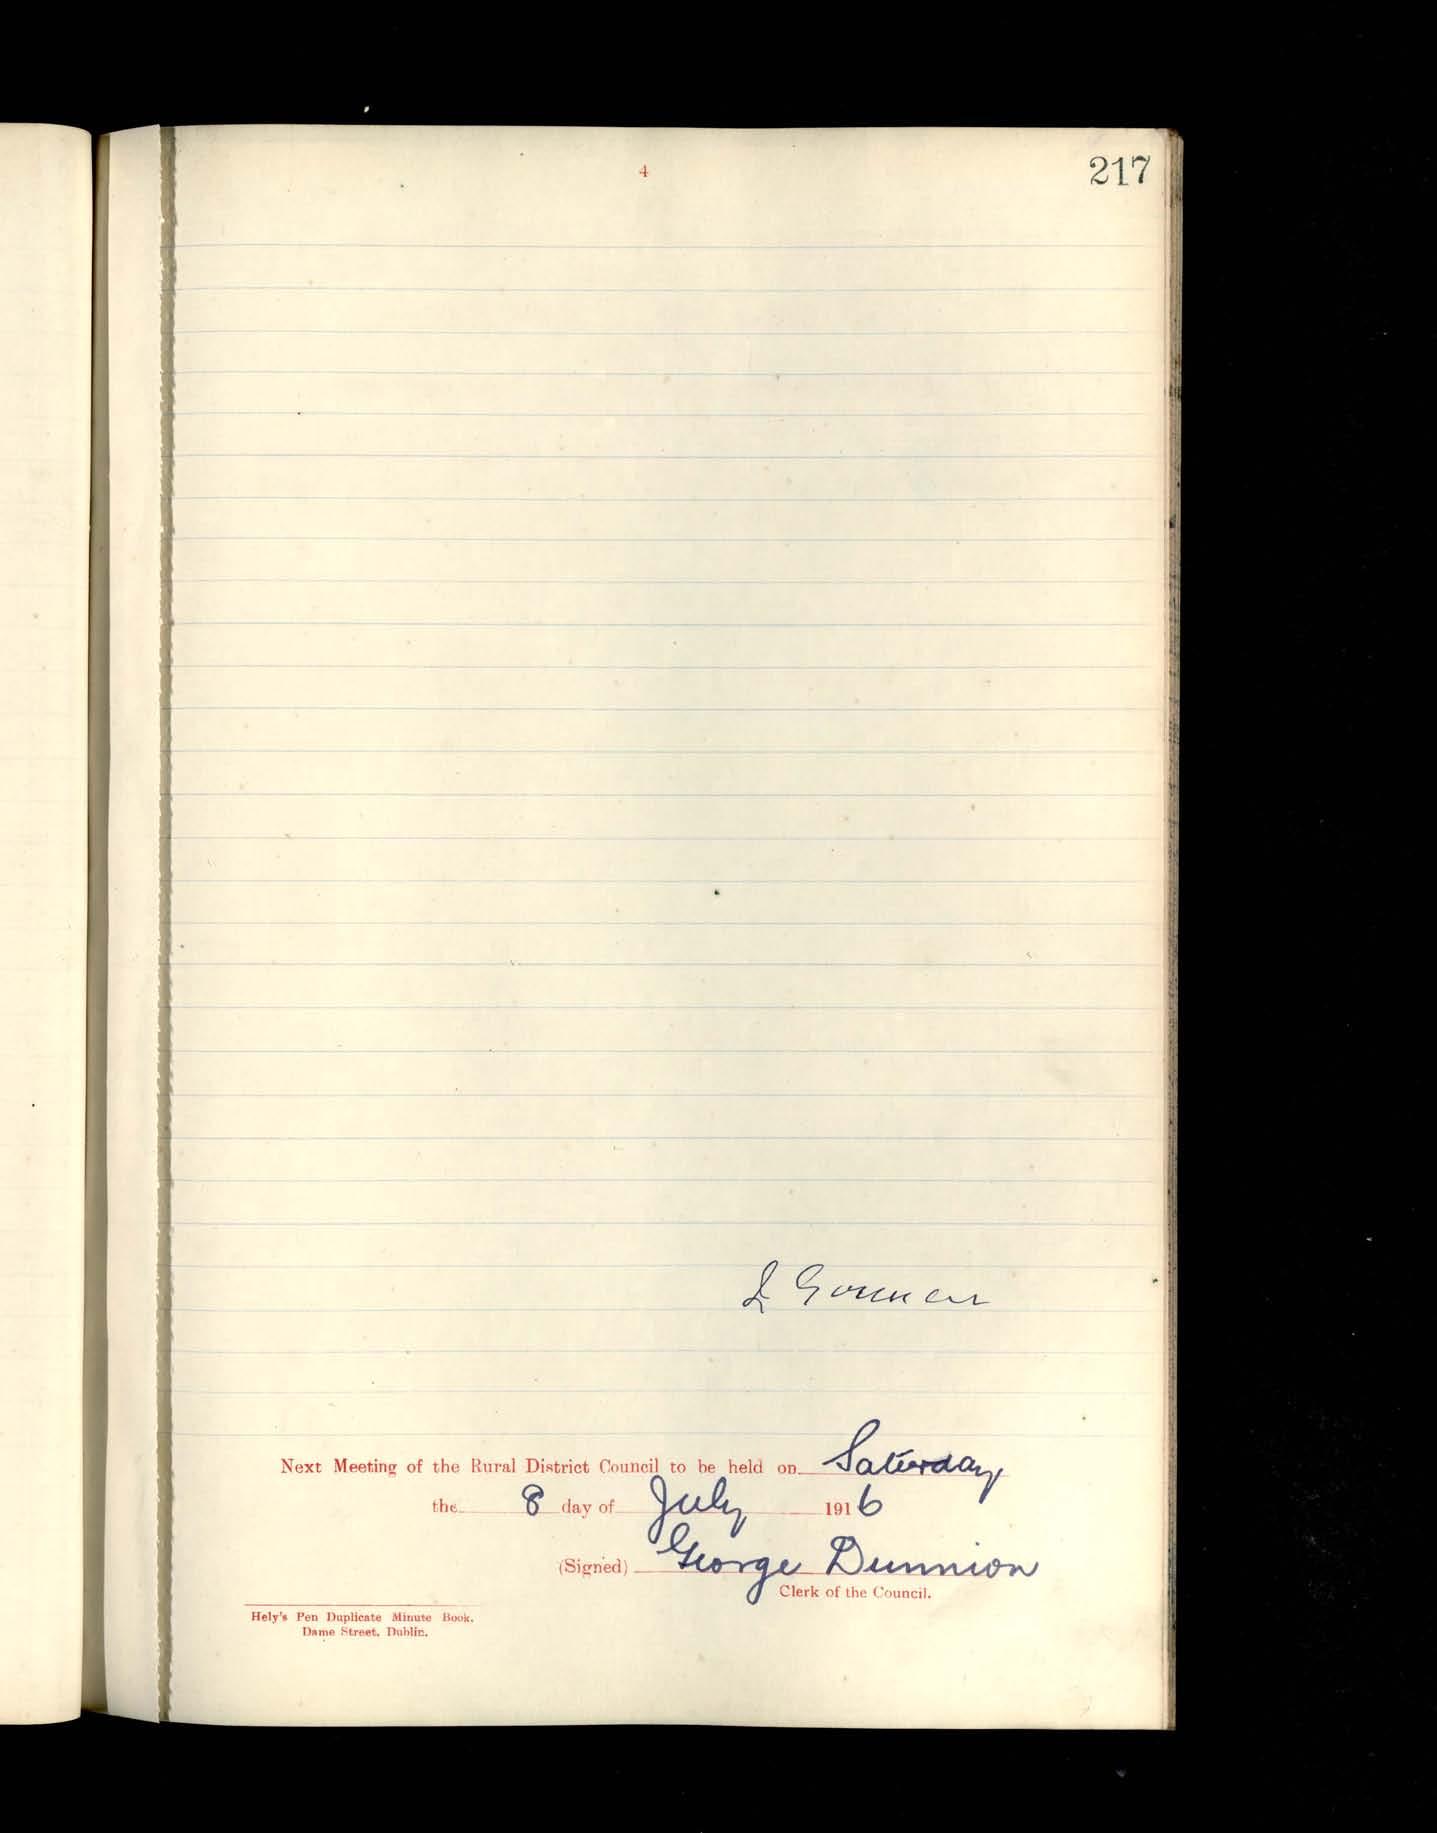 4
217
Next Meeting of the Rural District Council to be held on Saturday
the 8 day of July 1916
(Signed) George Dunnion
Clerk of the Council.
Hely's Pen Duplicate Minute Book.
Dame Street, Dublin.